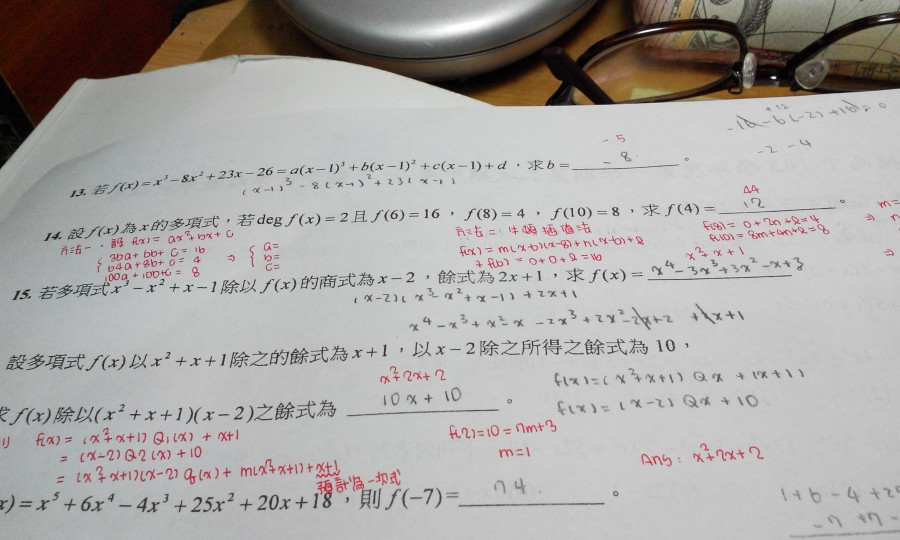 -5
13. 若 f(x) = x³ - 8x² + 23x - 26 = a(x-1)³ + b(x-1)² + c(x-1) + d，求 b = - 8 。
(x-1)³ - 8(x-1)² + 23(x-1)
-2 -4
44
14. 設 f(x) 為 x 的多項式，若 deg f(x) = 2 且 f(6) = 16，f(8) = 4，f(10) = 8，求 f(4) = 12 。
方法一、解 f(x) = ax²+bx+c
36a+6b+c=16
64a+8b+c=4
100a+10b+c=8
⇒ a= b= c=
方法二：牛頓插值法
f(8) = 0+2n+l=4
f(10) = 8m+4n+l=8
+ f(6) = 0+0+l=16
x²+x+1
15. 若多項式 x³ - x² + x - 1 除以 f(x) 的商式為 x-2，餘式為 2x+1，求 f(x) = x⁴-3x³+3x²-x+3
(x-2)(x³-x²+x-1)+2x+1
設多項式 f(x) 以 x² + x + 1 除之的餘式為 x+1，以 x-2 除之所得之餘式為 10，
x²+2x+2
求 f(x) 除以 (x² + x + 1)(x-2) 之餘式為 10x + 10 。
f(x)=(x²+x+1) Qx + (x+1)
f(x)=(x-2) Qx + 10
f(x) = (x²+x+1) Q1(x) + x+1
= (x-2) Q2(x) + 10
= (x²+x+1)(x-2) q(x) + m(x²+x+1) + x+1
預計為一次式
f(2)=10=7m+3
m=1
Ans: x²+2x+2
x) = x⁵ + 6x⁴ - 4x³ + 25x² + 20x + 18，則 f(-7) = 74 。
1+6-4+25